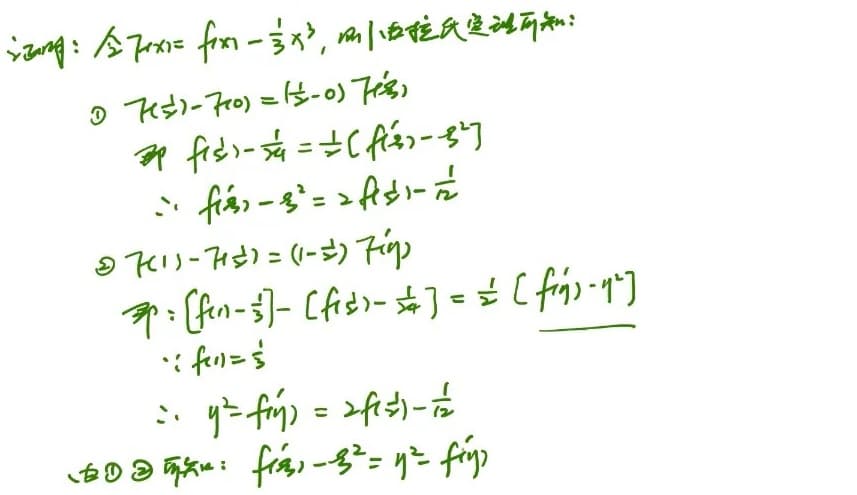 证明：令F(x)=f(x)-\frac{1}{3}x^3, 则由拉氏定理可知：
① F(\frac{1}{2})-F(0)=(\frac{1}{2}-0)F'(ξ)
即 f(\frac{1}{2})-\frac{1}{24}=\frac{1}{2}[f'(ξ)-ξ^2]
∴ f'(ξ)-ξ^2=2f(\frac{1}{2})-\frac{1}{12}
② F(1)-F(\frac{1}{2})=(1-\frac{1}{2})F'(η)
即：[f(1)-\frac{1}{3}]-[f(\frac{1}{2})-\frac{1}{24}]=\frac{1}{2}[f'(η)-η^2]
∵ f(1)=\frac{1}{3}
∴ η^2-f'(η)=2f(\frac{1}{2})-\frac{1}{12}
由①②可知：f'(ξ)-ξ^2=η^2-f'(η)